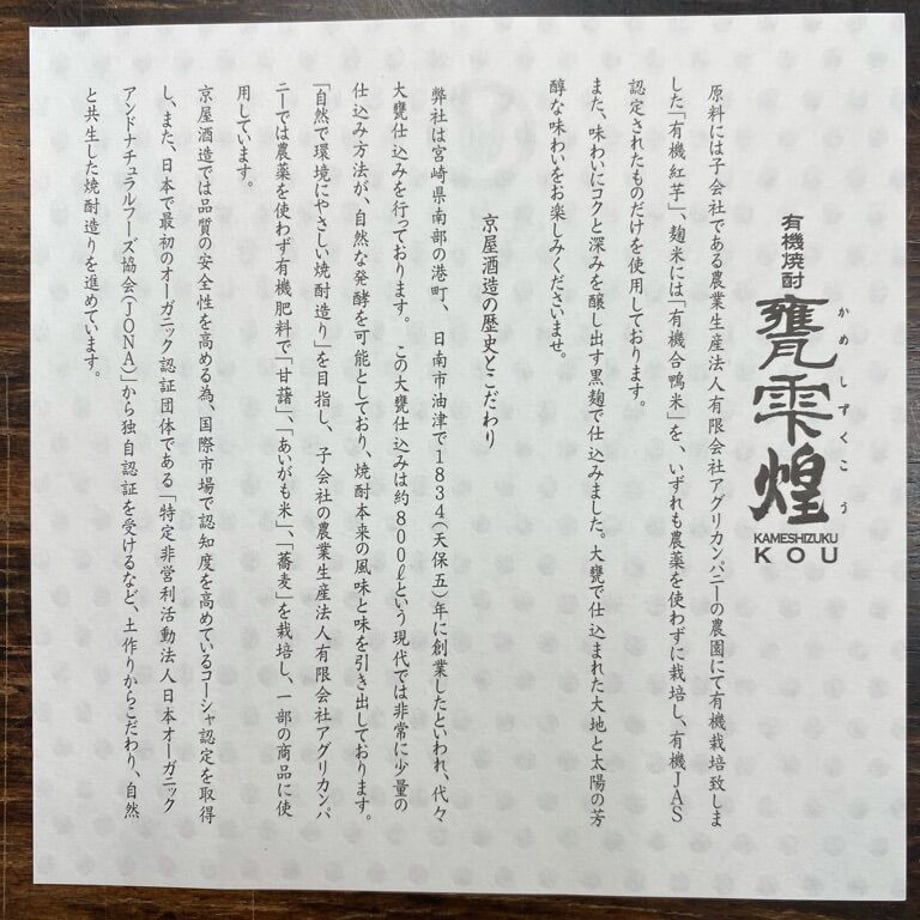 有機焼酎
甕雫煌
かめしずくこう
KAMESHIZUKU
KOU
原料には子会社である農業生産法人有限会社アグリカンパニーの農園にて有機栽培致しま
した「有機紅芋」、麹米には「有機合鴨米」を、いずれも農薬を使わずに栽培し、有機JAS
認定されたものだけを使用しております。
また、味わいにコクと深みを醸し出す黒麹で仕込みました。大甕で仕込まれた大地と太陽の芳
醇な味わいをお楽しみくださいませ。
京屋酒造の歴史とこだわり
弊社は宮崎県南部の港町、日南市油津で1834(天保五)年に創業したといわれ、代々
大甕仕込みを行っております。この大甕仕込みは約800ℓという現代では非常に少量の
仕込み方法が、自然な発酵を可能としており、焼酎本来の風味と味を引き出しております。
「自然で環境にやさしい焼酎造り」を目指し、子会社の農業生産法人有限会社アグリカンパ
ニーでは農薬を使わず有機肥料で「甘藷」、「あいがも米」、「蕎麦」を栽培し、一部の商品に使
用しています。
京屋酒造では品質の安全性を高める為、国際市場で認知度を高めているコーシャ認定を取得
し、また、日本で最初のオーガニック認証団体である「特定非営利活動法人日本オーガニック
アンドナチュラルフーズ協会(JONA)」から独自認証を受けるなど、土作りからこだわり、自然
と共生した焼酎造りを進めています。